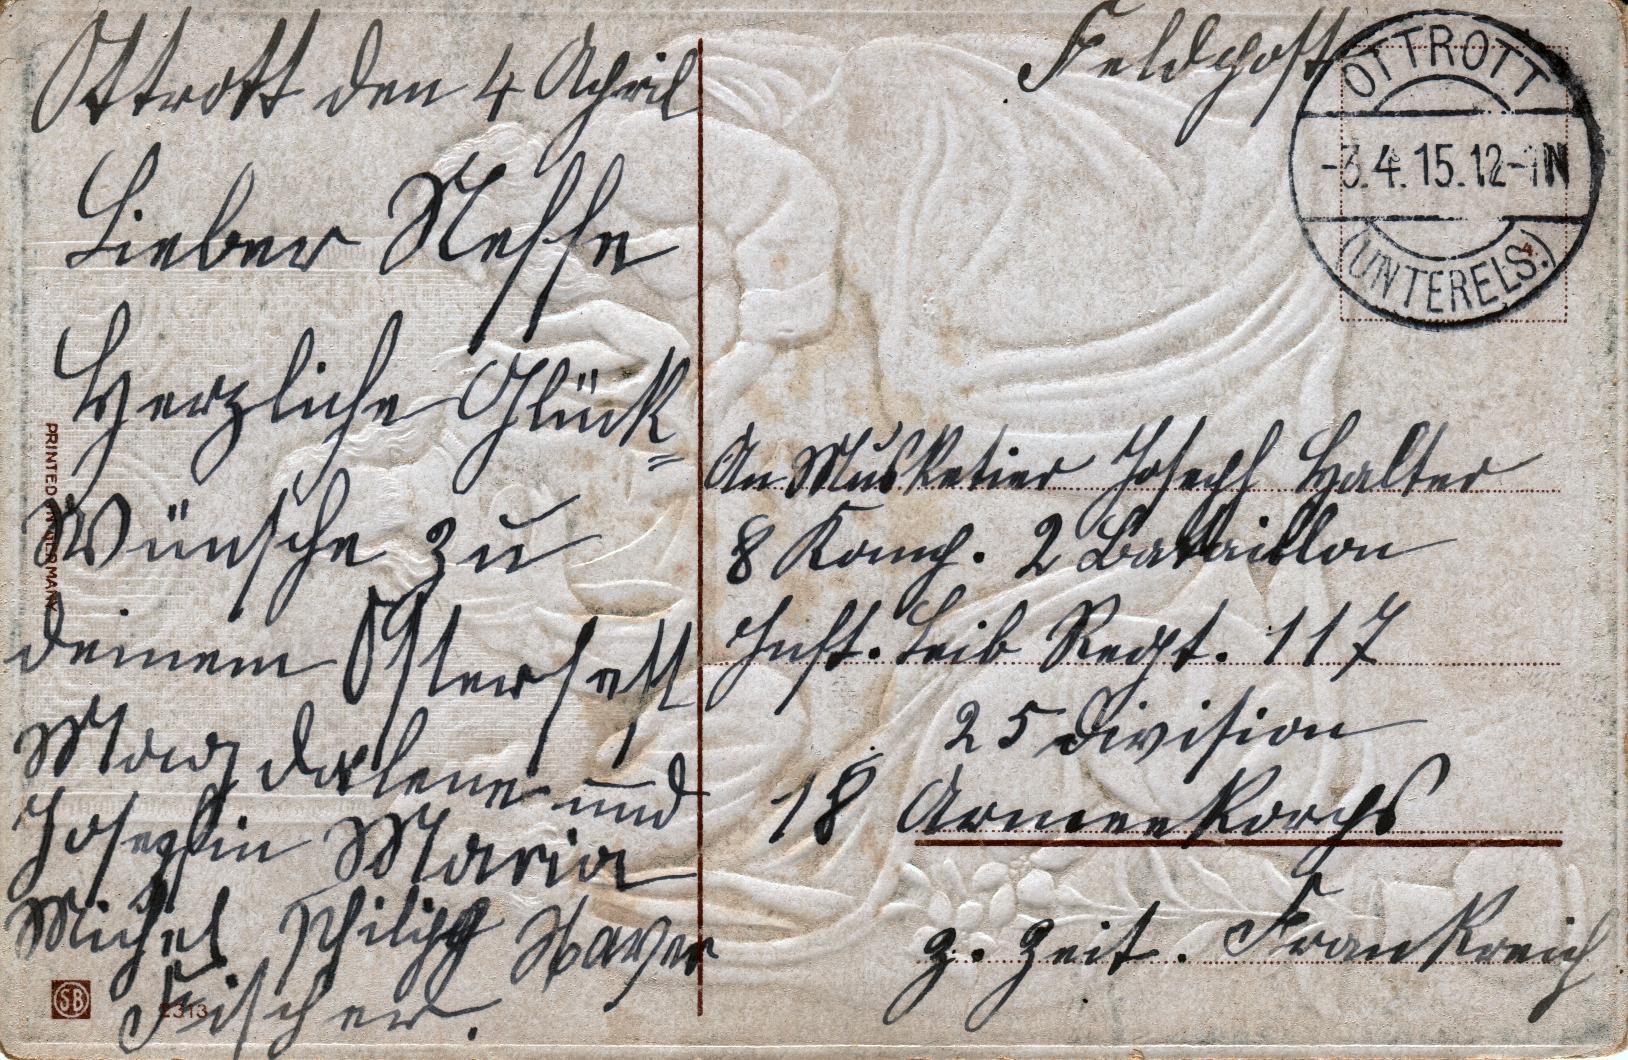 Ottrott den 4 April
Lieber Neffe
Herzliche Glück=
Wünsche zu
deinem Osterfest
Magdalene und
Josephin Maria
Michel Philipp Xaver
Fischer.
PRINTED IN GERMANY
SB
2313
Feldpost
OTTROTT
-3.4.15.12-1N
(UNTERELS.)
An Musketier Joseph Halter
8 Komp. 2 Bataillon
Inft. Leib Regt. 117
25 Division
18 Armeekorps
z. Zeit. Frankreich